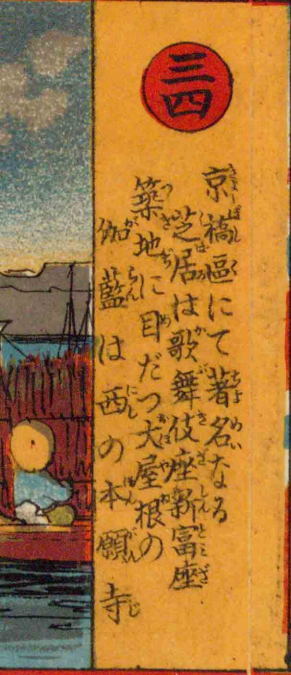 三四
京橋區にて著名なる
芝居は歌舞伎座新富座
築地に目だつ大屋根の
伽藍は西の本願寺